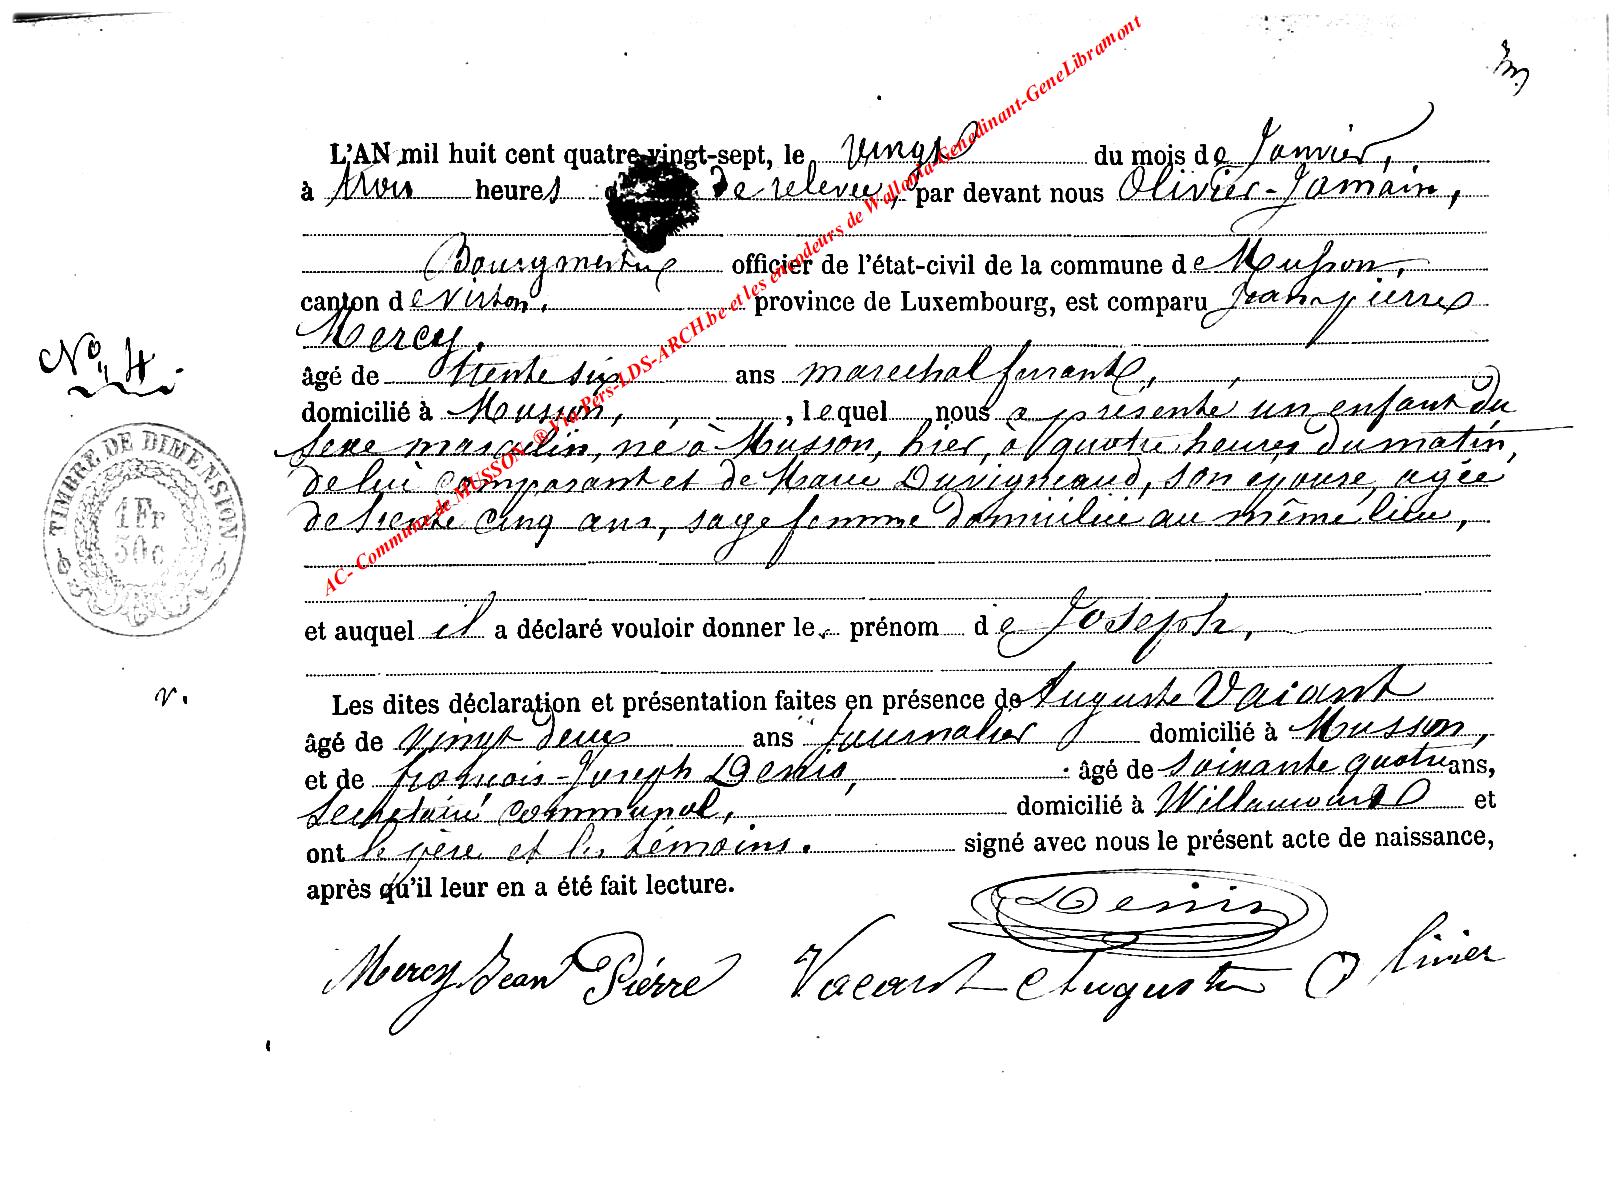 L'AN mil huit cent quatre-vingt-sept, le vingt du mois de Janvier,
à trois heures de relevée, par devant nous Olivier-Jamain,
Bourgmestre officier de l'état-civil de la commune de Musson,
canton de Virton, province de Luxembourg, est comparu Jean-pierre
Mercy.
No 4.
âgé de trente six ans marechal ferrant,
domicilié à Musson, , lequel nous a présenté un enfant du
sexe masculin, né à Musson, hier, à quatre heures du matin,
de lui comparant et de Marie, son épouse, agée
de trente cinq ans, sage femme domiciliée au même lieu,
TIMBRE DE DIMENSION
1 Fr
50 c
et auquel il a déclaré vouloir donner le prénom de Joseph,
v.
Les dites déclaration et présentation faites en présence de Auguste Vacant
âgé de vingt deux ans journalier domicilié à Musson,
et de françois-Joseph Denis, âgé de soixante quatre ans,
Secrétaire communal, domicilié à Willancourt et
ont le père et les témoins. signé avec nous le présent acte de naissance,
après qu'il leur en a été fait lecture.
Denis
Mercy Jean Pierre Vacant Auguste Olivier
AC- Commune de MUSSON ® Via Pers-LDS-ARCH.be et les encodeurs de Wallonia-Genedinant-GeneLibramont